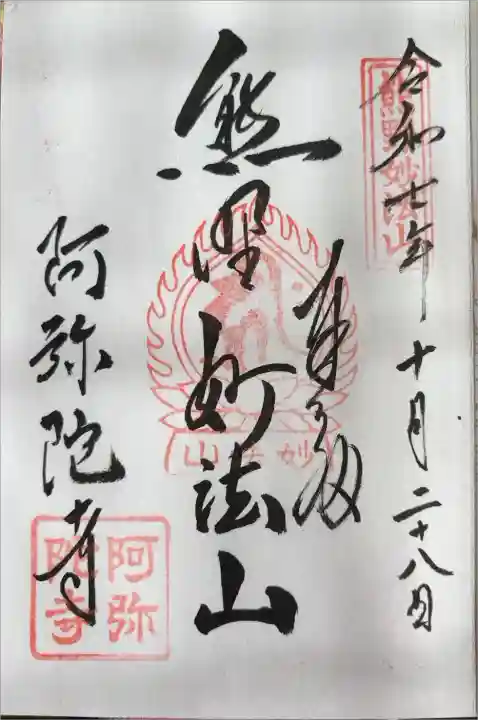 令和七年十月二十八日
熊野妙法山
奉拝
熊野妙法山
妙法山
阿弥陀寺
阿弥陀寺